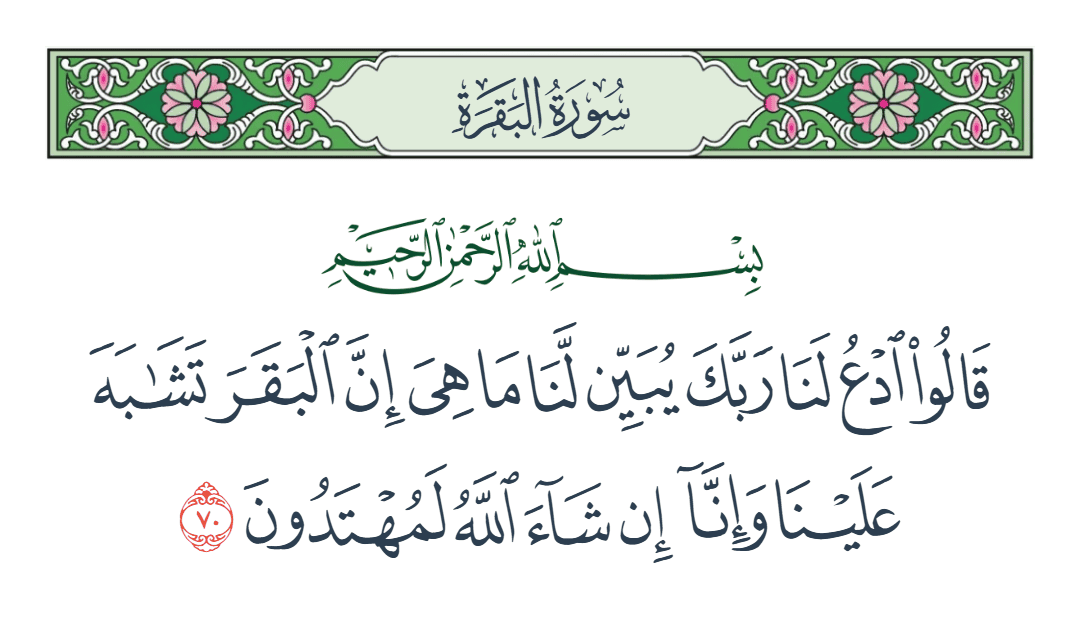 سُورَةُ البَقَرَةِ
بِسْمِ ٱللَّهِ ٱلرَّحْمَٰنِ ٱلرَّحِيمِ
قَالُوا۟ ٱدْعُ لَنَا رَبَّكَ يُبَيِّن لَّنَا مَا هِىَ إِنَّ ٱلْبَقَرَ تَشَـٰبَهَ
عَلَيْنَا وَإِنَّآ إِن شَآءَ ٱللَّهُ لَمُهْتَدُونَ ٧٠